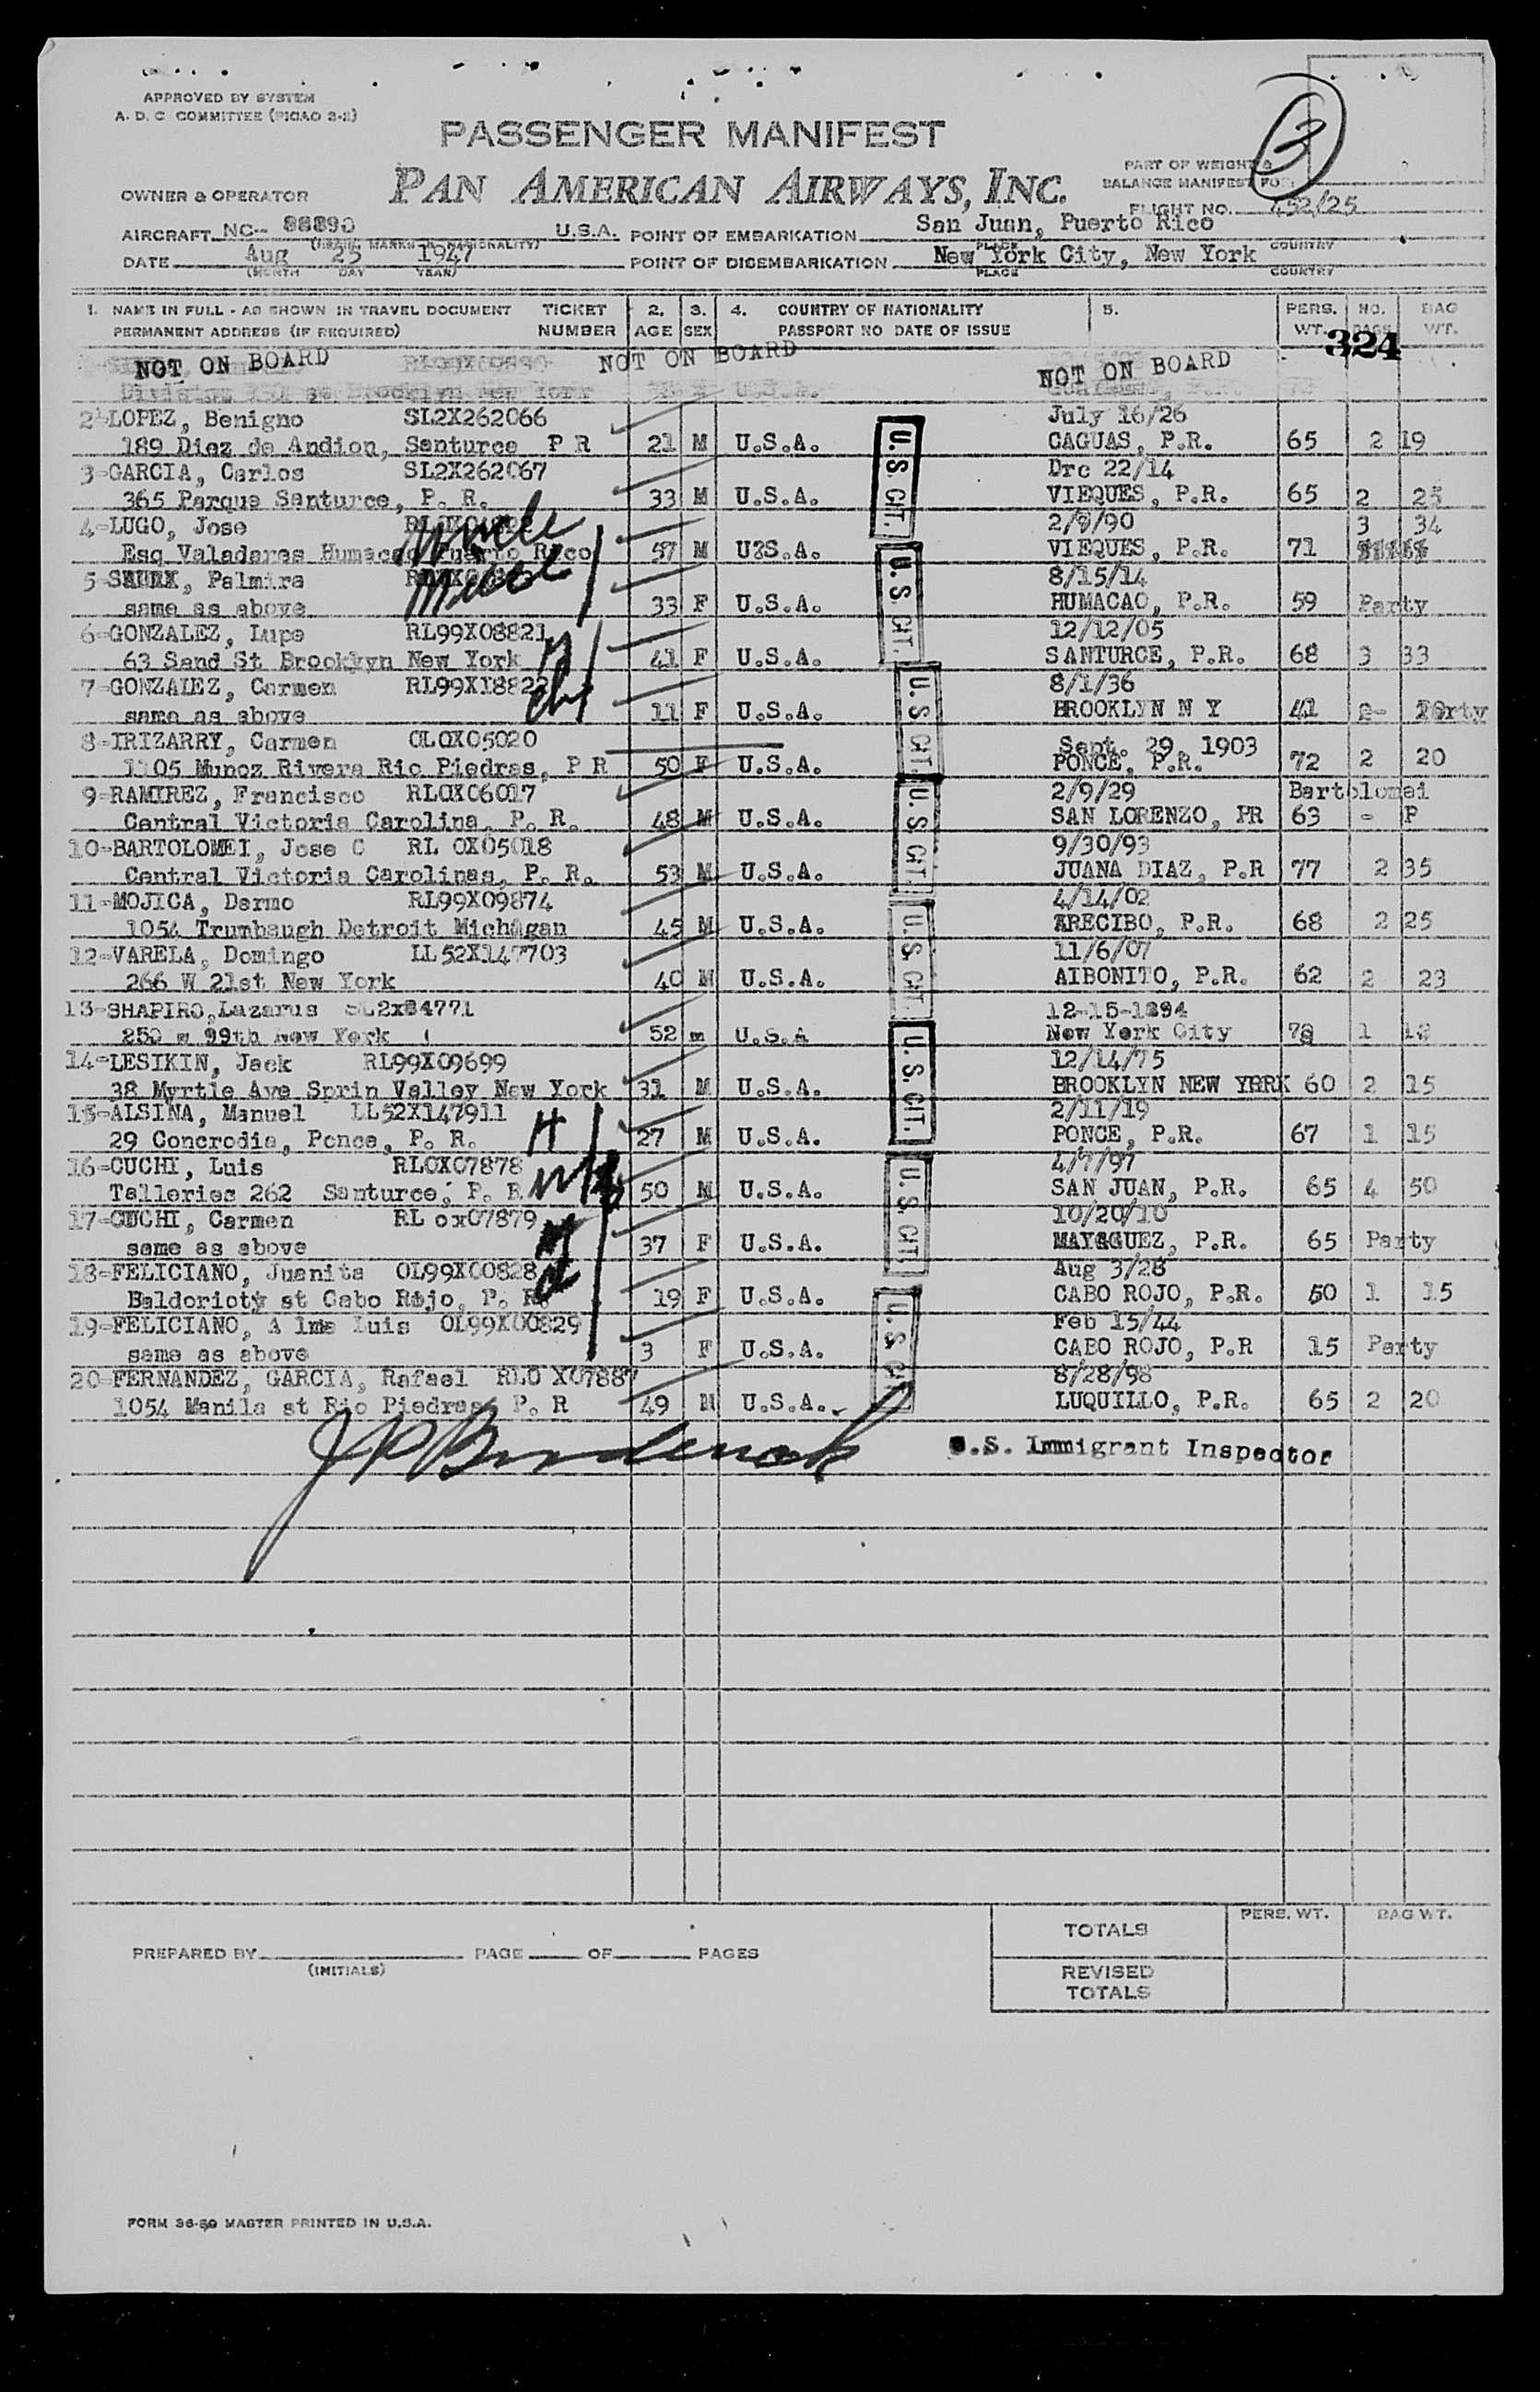 APPROVED BY SYSTEM
A. D. C COMMITTEE (PICAO 2-2)
3
PASSENGER MANIFEST
PAN AMERICAN AIRWAYS, INC.
PART OF WEIGHT &
BALANCE MANIFEST FOR
OWNER & OPERATOR
FLIGHT NO. 452/25
AIRCRAFT NC-- 88890 U.S.A. POINT OF EMBARKATION San Juan, Puerto Rico
PLACE COUNTRY
DATE Aug 25 1947 POINT OF DISEMBARKATION New York City, New York
(MONTH DAY YEAR) PLACE COUNTRY
1. NAME IN FULL - AS SHOWN IN TRAVEL DOCUMENT TICKET 2. 3. 4. COUNTRY OF NATIONALITY 5. PERS. NO. BAG
PERMANENT ADDRESS (IF REQUIRED) NUMBER AGE SEX PASSPORT NO DATE OF ISSUE WT. BAGS WT.
324
NOT ON BOARD NOT ON BOARD NOT ON BOARD
U.S.A.
2-LOPEZ, Benigno SL2X262066 July 16/26
189 Diez de Andion, Santurce P R 21 M U.S.A. CAGUAS, P.R. 65 2 19
3-GARCIA, Carlos SL2X262067 Drc 22/14
365 Parque Santurce, P. R. 33 M U.S.A. VIEQUES, P.R. 65 2 25
4-LUGO, Jose Uncle 2/8/90 3 34
Esq Valadares Humacao Puerto Rico 57 M U?S.A. VIEQUES, P.R. 71
5- Palmira Niece 8/15/14
same as above 33 F U.S.A. HUMACAO, P.R. 59 Party
6-GONZALEZ, Lupe RL99X08821 12/12/05
63 Sand St Brooklyn New York 41 F U.S.A. SANTURCE, P.R. 68 3 33
7-GONZALEZ, Carmen RL99X18822 8/1/36
same as above 11 F U.S.A. BROOKLYN N Y 41 Party
8-IRIZARRY, Carmen OLOX05020 Sept. 29, 1903
1105 Munoz Rivera Rio Piedras, P R 50 F U.S.A. PONCE, P.R. 72 2 20
9-RAMIREZ, Francisco RLOX06017 2/9/29 Bartolomei
Central Victoria Carolina, P. R. 48 M U.S.A. SAN LORENZO, PR 63 - P
10-BARTOLOMEI, Jose C RL OX05018 9/30/93
Central Victoria Carolinas, P. R. 53 M U.S.A. JUANA DIAZ, P.R 77 2 35
11-MOJICA, Dermo RL99X09874 4/14/02
1054 Trumbaugh Detroit Michigan 45 M U.S.A. ARECIBO, P.R. 68 2 25
12-VARELA, Domingo LL52X147703 11/6/07
266 W 21st New York 40 M U.S.A. AIBONITO, P.R. 62 2 23
13-SHAPIRO,Lazarus SL2x84771 12-15-1894
250 w 99th New York 52 m U.S.A New York City 1
14-LESIKIN, Jack RL99X09699 12/14/75
38 Myrtle Ave Sprin Valley New York 31 M U.S.A. BROOKLYN NEW YRRK 60 2 15
15-ALSINA, Manuel LL52X147911 H 2/11/19
29 Concrodia, Ponce, P. R. 27 M U.S.A. PONCE, P.R. 67 1 15
16-CUCHI, Luis RLOX07878 4/7/97
Talleries 262 Santurce, P. R 50 M U.S.A. SAN JUAN, P.R. 65 4 50
17-CUCHI, Carmen RL ox07879 10/20/10
same as above 37 F U.S.A. MAYGGUEZ, P.R. 65 Party
18-FELICIANO, Juanita OL99X00828 Aug 3/28
Baldorioty st Cabo Rojo, P. R. 19 F U.S.A. CABO ROJO, P.R. 50 1 15
19-FELICIANO, A lma Luis OL99X00829 Feb 15/44
same as above 3 F U.S.A. CABO ROJO, P.R 15 Party
20-FERNANDEZ, GARCIA, Rafael RLO X07887 8/28/98
1054 Manila st Rio Piedras, P. R 49 M U.S.A. LUQUILLO, P.R. 65 2 20
U.S. CIT.
U.S. CIT.
U.S. CIT.
U.S. CIT.
U.S. CIT.
U.S. CIT.
U.S. CIT.
U.S. CIT.
U.S. Immigrant Inspector
PERS. WT. BAG WT.
TOTALS
PREPARED BY PAGE OF PAGES
(INITIALS)
REVISED
TOTALS
FORM 36-50 MASTER PRINTED IN U.S.A.